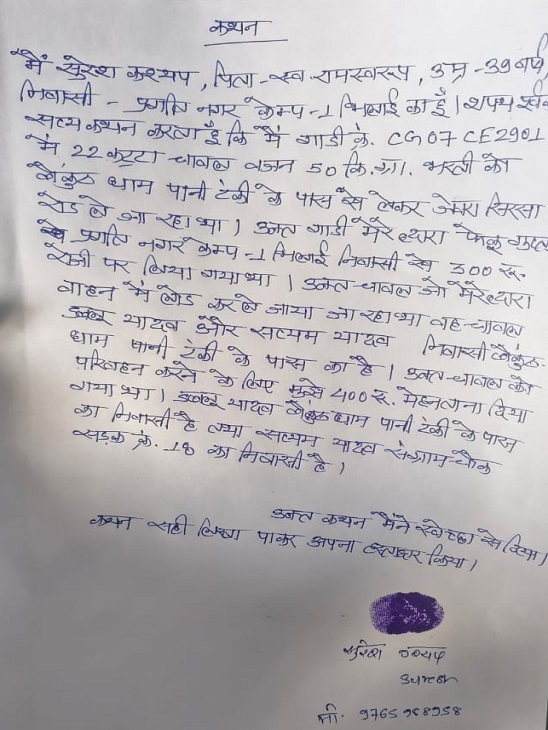 कथन
मैं सुरेश कश्यप, पिता - स्व. रामस्वरूप, उम्र - 39 वर्ष
निवासी - प्रगति नगर केम्प -1 भिलाई का हूँ। शपथ पूर्वक
सत्य कथन करता हूँ कि मैं गाडी क्रं. CG07 CE2901
में 22 कट्टा चावल वजन 50 कि.ग्रा. भरती को
बैकुंठ धाम पानी टंकी के पास से लेकर जेवरा सिरसा
रोड ले जा रहा था। उक्त गाडी मेरे द्वारा
प्रगति नगर केम्प -1 भिलाई निवासी से 300 रू.
रोजी पर लिया गया था। उक्त चावल जो मेरे द्वारा
वाहन में लोड कर ले जाया जा रहा था वह चावल
यादव और सत्यम यादव निवासी बैकुंठ
धाम पानी टंकी के पास का है। उक्त चावल को
परिवहन करने के लिए मुझे 400 रू. मेहनताना दिया
गया था। यादव बैकुंठ धाम पानी टंकी के पास
का निवासी है तथा सत्यम यादव संग्राम चौक
सड़क क्रं. 18 का निवासी है।
उक्त कथन मैंने स्वेच्छा से दिया।
कथन सही लिखा पाकर अपना हस्ताक्षर किया।
सुरेश कश्यप
Suresh
मो. 9765968958